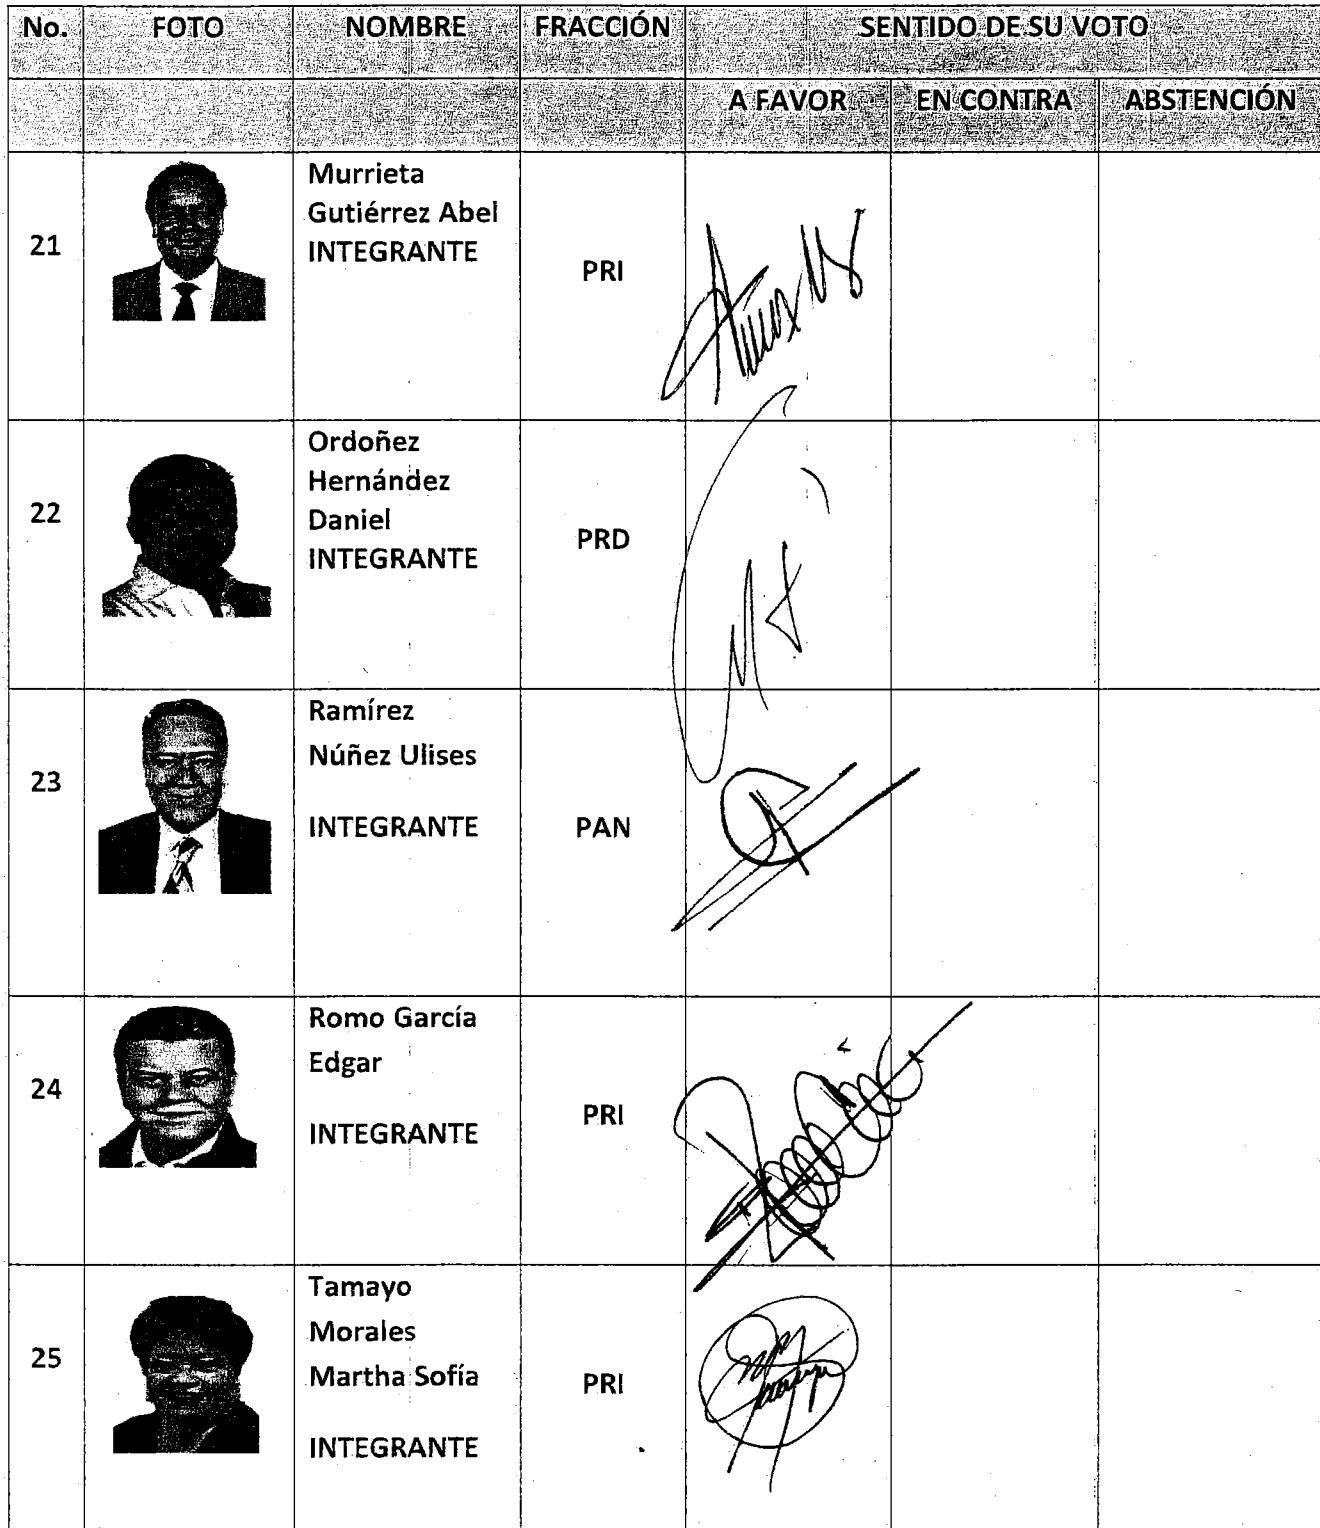 No. FOTO NOMBRE FRACCIÓN SENTIDO DE SU VOTO
A FAVOR EN CONTRA ABSTENCIÓN
21
Murrieta
Gutiérrez Abel
INTEGRANTE
PRI
22
Ordoñez
Hernández
Daniel
INTEGRANTE
PRD
23
Ramírez
Núñez Ulises
INTEGRANTE
PAN
24
Romo García
Edgar
INTEGRANTE
PRI
25
Tamayo
Morales
Martha Sofía
INTEGRANTE
PRI